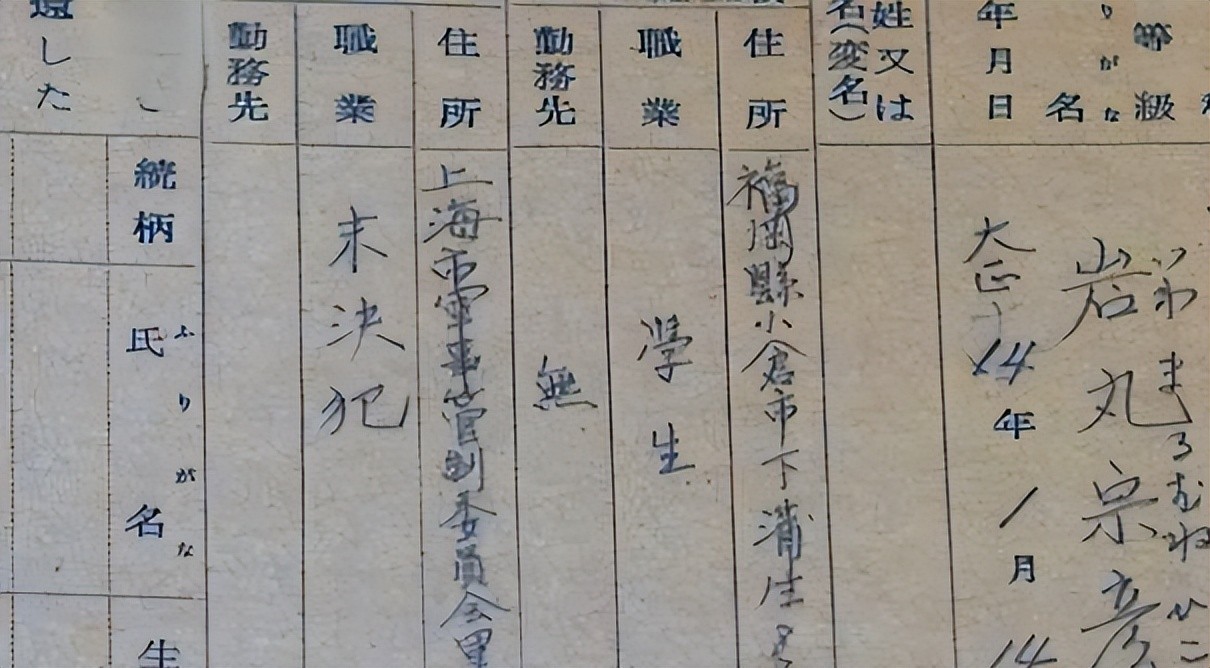 級
ふりがな
名
いわまるむねひこ
岩丸宗彦
年月日
大正14年1月14
姓又は
名(変名)
住所
福岡縣小倉市下蒲生
職業
學生
勤務先
無
住所
上海市軍事管制委員会
職業
未決犯
勤務先
した
続柄
ふりがな
氏名
生